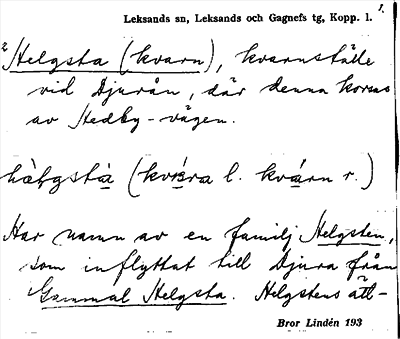 Leksands sn, Leksands och Gagnefs tg, Kopp. l.
1.
2 Helgsta (kvarn), kvarnställe
vid Djurån, där denna korsas
av Hedby-vägen.
(kvarn r.)
Har namn av en familj Helgsten,
som inflyttat till Djura från
Gammal Helgsta. Helgstens ätt-
Bror Lindén 193